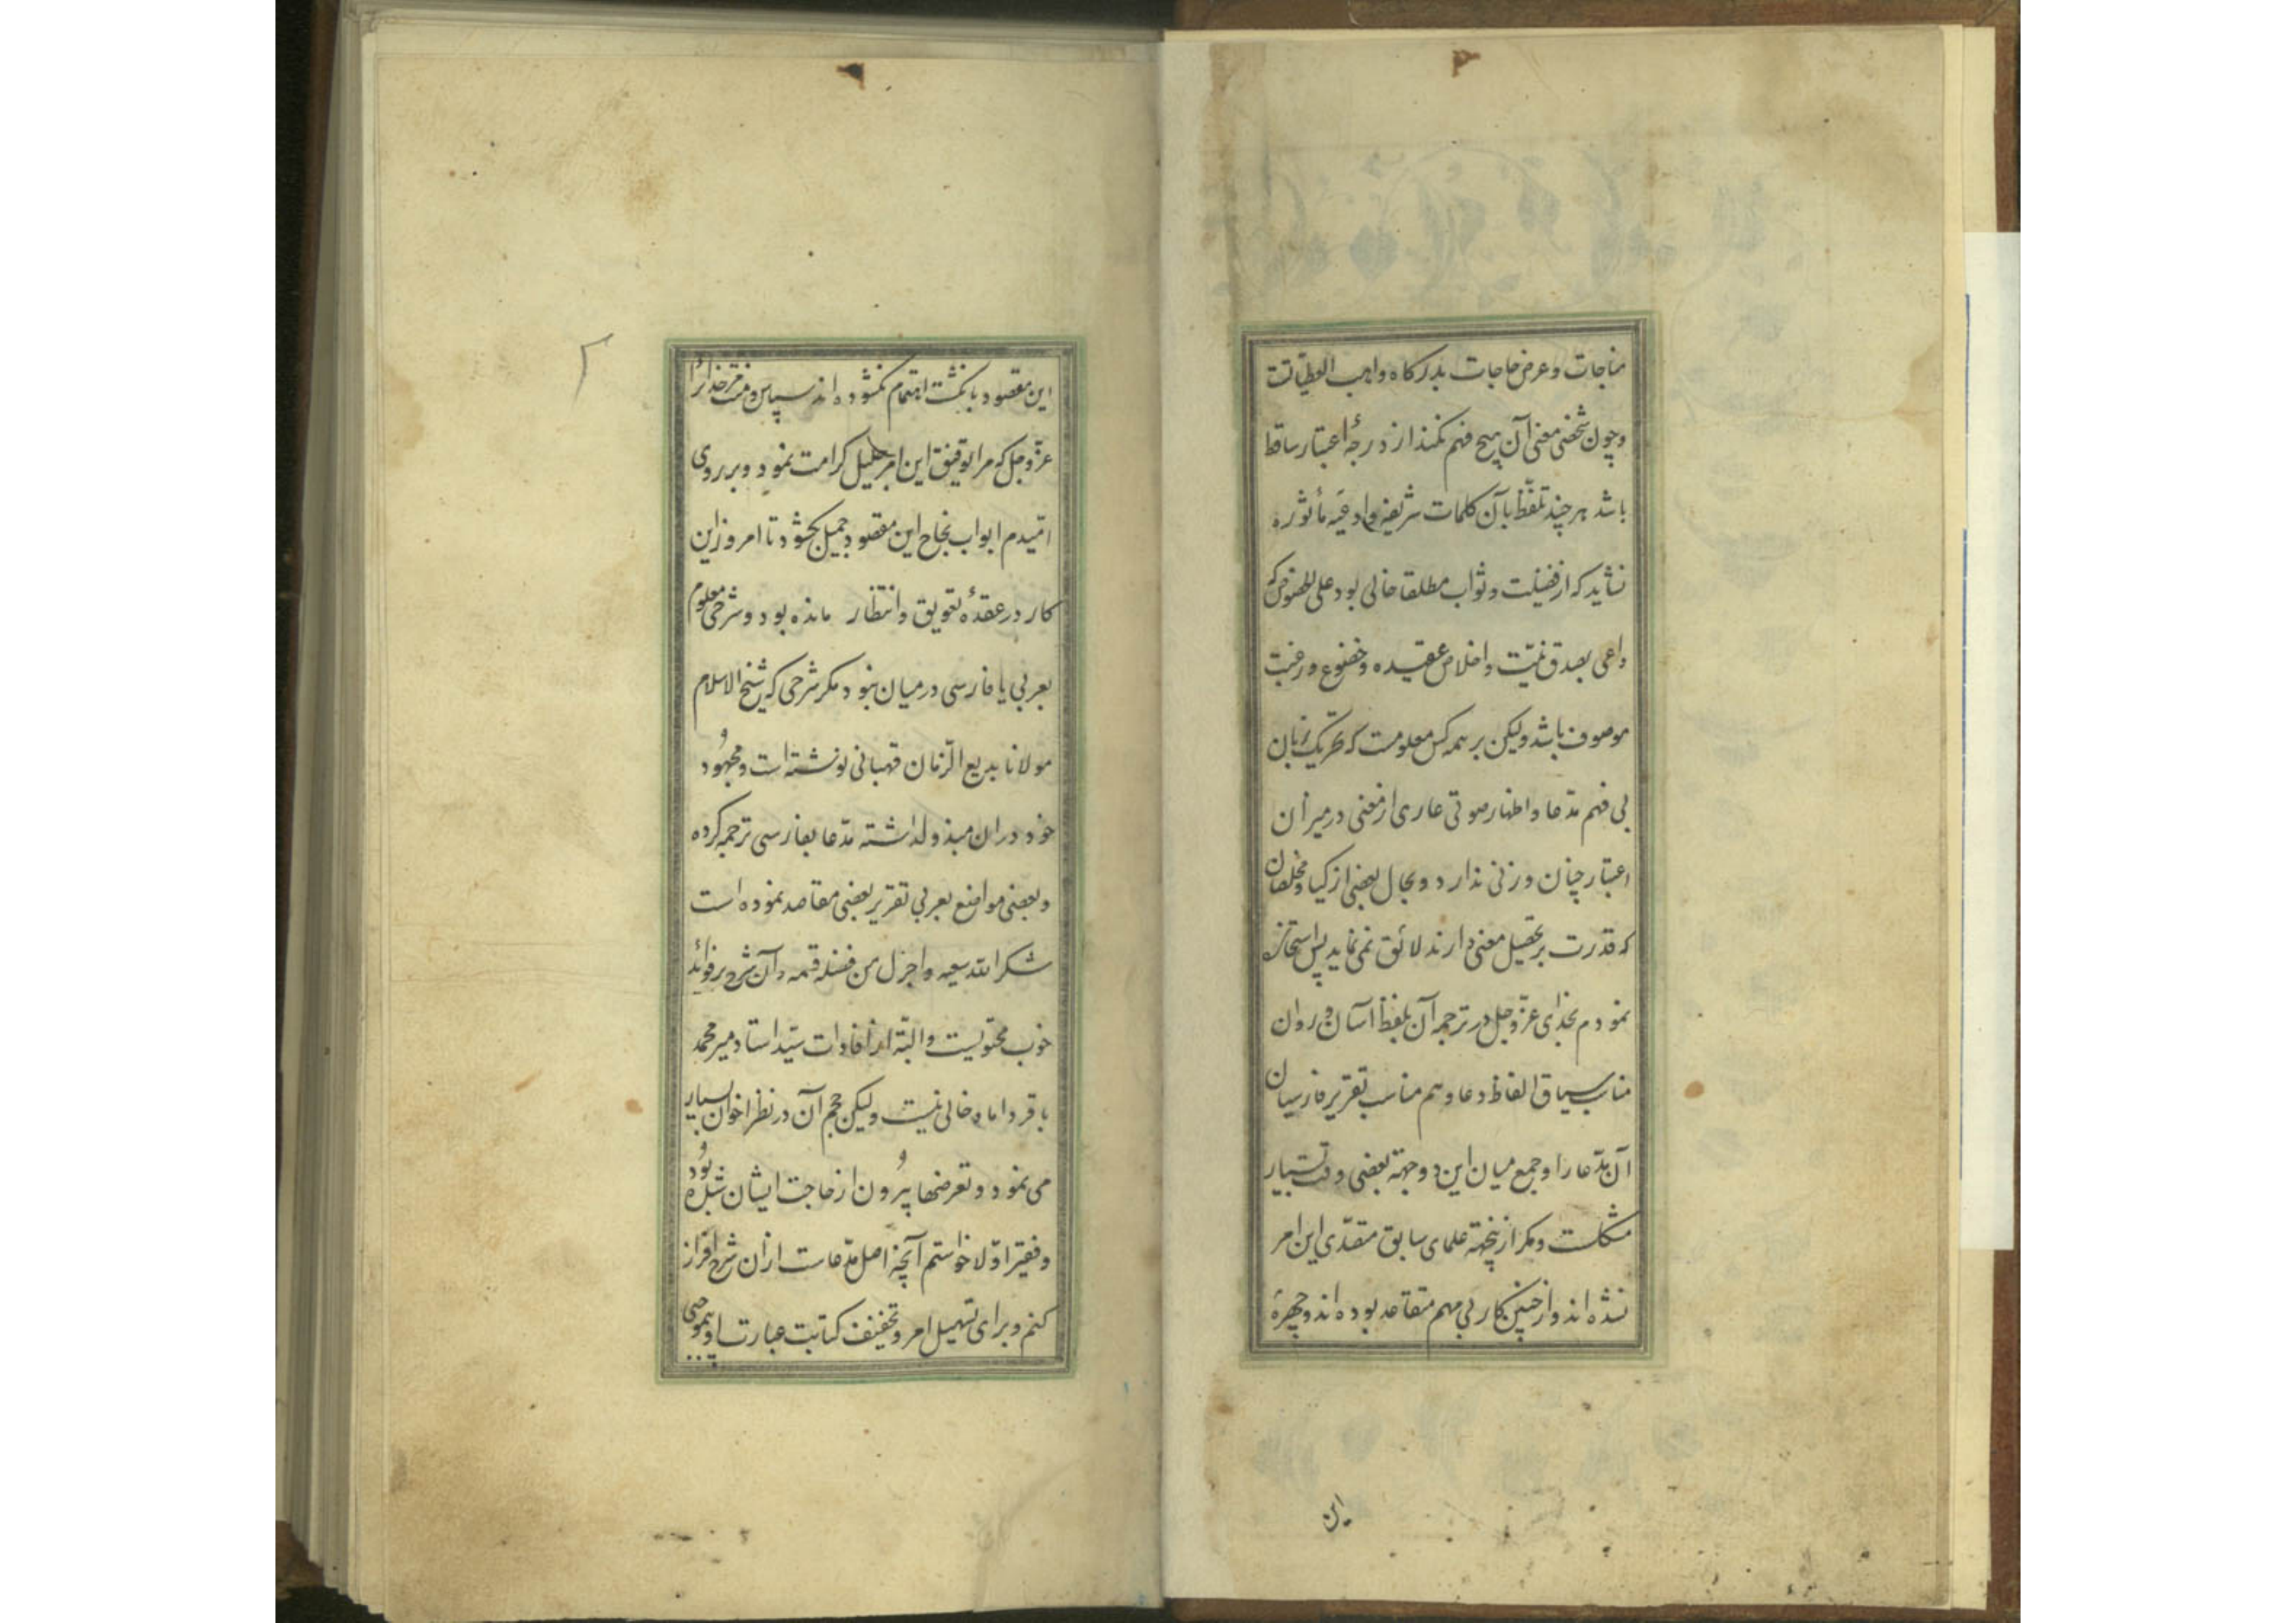 مناجات و عرض حاجات بدرکاه واهب العطیاتست
و چون شخصی معنی آن هیچ فهم نکند از درجهٔ اعتبار ساقط
باشد هر چند تلفّظ بآن کلمات شریفه و ادعیهٔ مأثوره
نشاید که از فضیلت و ثواب مطلقا خالی بود علی الخصوص که
داعی بصدق نیّت و اخلاص عقیده و خضوع و رغبت
موصوف باشد ولیکن بر همه کس معلومست که تحریک زبان
بی فهم مدّعا و اظهار صوتی عاری از معنی در میزان
اعتبار چنان وزنی ندارد و بحال بعضی از
که قدرت بر تحصیل معنی دارند لائق نمی نماید پس استخاره
نمودم بخدای عزّ و جل در ترجمه آن بلفظ آسان و روان
مناسب سیاق الفاظ دعا و هم مناسب تقریر فارسیان
آن مدّعا را و جمع میان این دو جهة بعضی وقت بسیار
مشکلست و مکر ازینجهة علمای سابق متصدّی این امر
نشده اند و از چنین کار بی مهم متقاعد بوده اند و چهرهٔ
این
۲
این مقصود بانکشت اهتمام نکشوده اند سپاس و منّت خدایرا
عزّ و جل که مرا توفیق این امر جلیل کرامت نمود و بر روی
امّیدم ابواب نجاح این مقصود جمیل بکشود تا امروز این
کار در عقدهٔ تعویق و انتظار مانده بود و شرحی معلوم
بعربی یا فارسی در میان نبود مکر شرحی که شیخ الاسلام
مولانا بدیع الزّمان قهپانی نوشته است و مجهود
خود در ان مبذول داشته مدّعا بفارسی ترجمه کرده
و بعضی مواضع بعربی تقریر بعضی مقاصد نموده است
شکر الله سعیه و اجزل من فضله قسمه و آن شرح بر فوائد
خوب محتویست و البتّه از افادات سیّد استاد میر محمد
باقر داماد خالی نیست ولیکن حجم آن در نظر اخوان بسیار
می نمود و تعرضها بیرون از حاجت ایشان شده بود
و فقیر اوّلا خواستم آنچه اصل مدّعاست از ان شرح افراز
کنم و برای تسهیل امر و تخفیف کتابت عبارت او